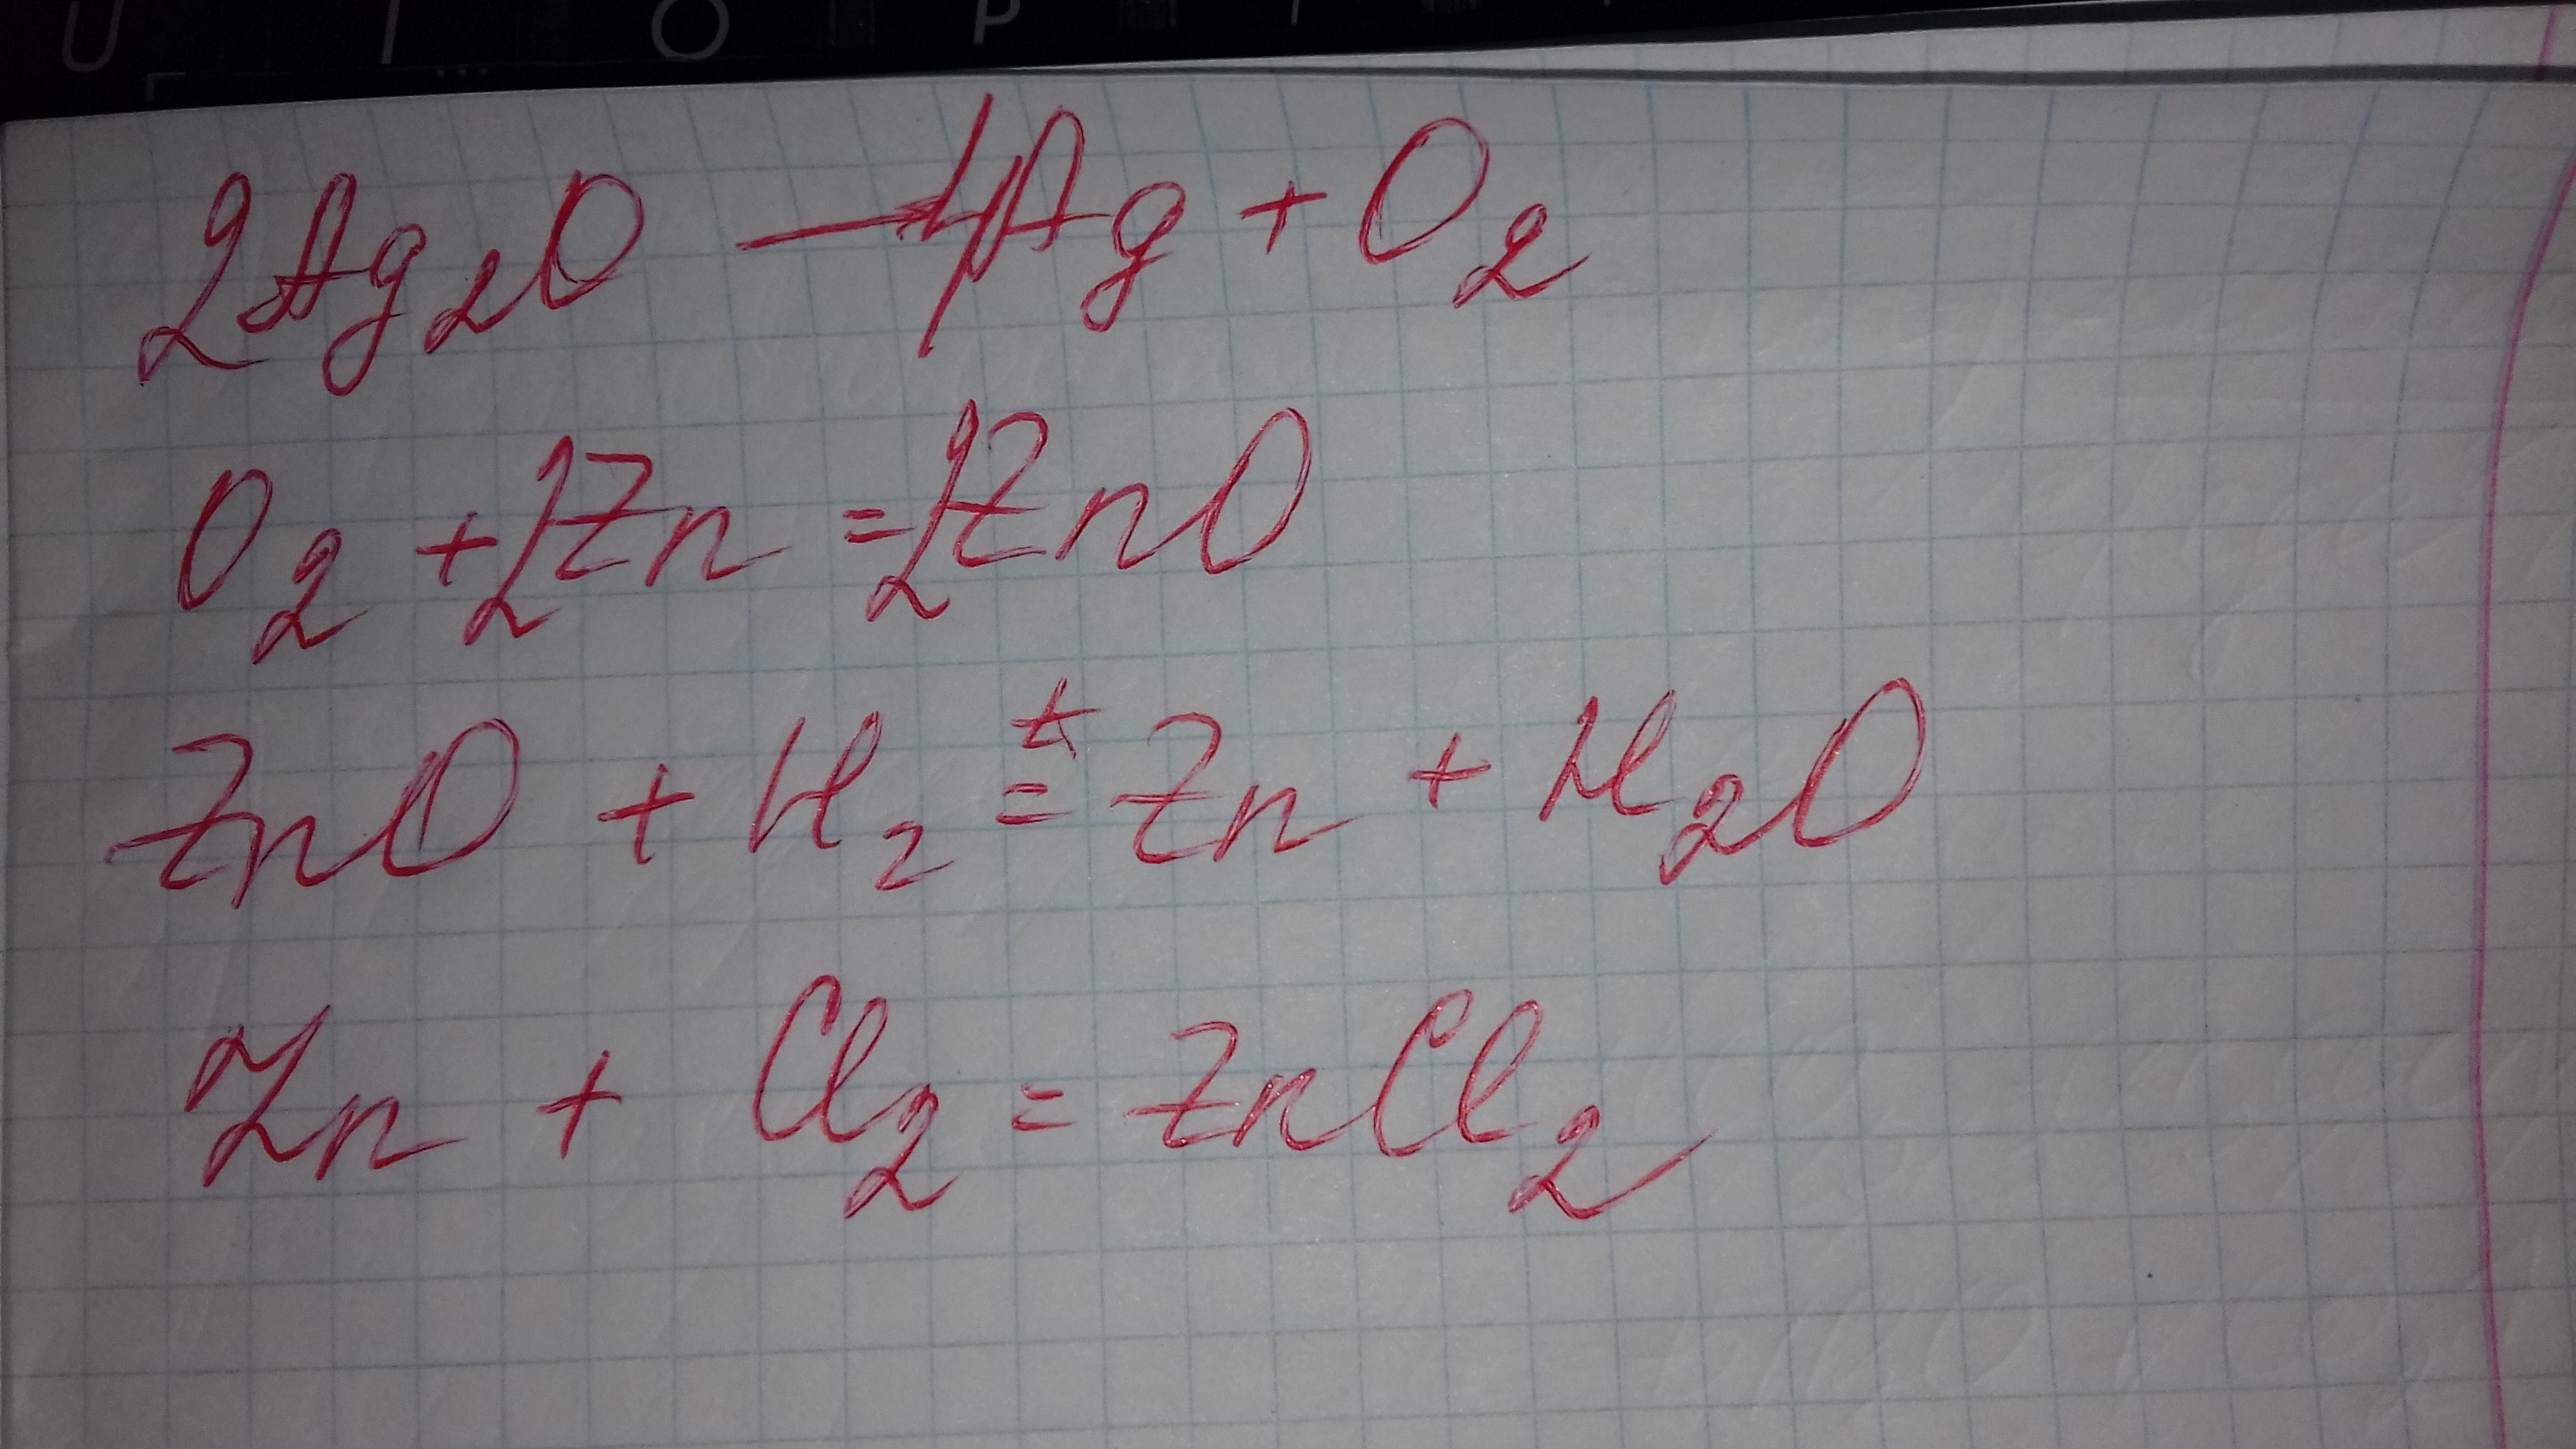 U I O P
2Ag₂O → 4Ag + O₂
O₂ + 2Zn = 2ZnO
ZnO + H₂ =ᵗ Zn + H₂O
Zn + Cl₂ = ZnCl₂